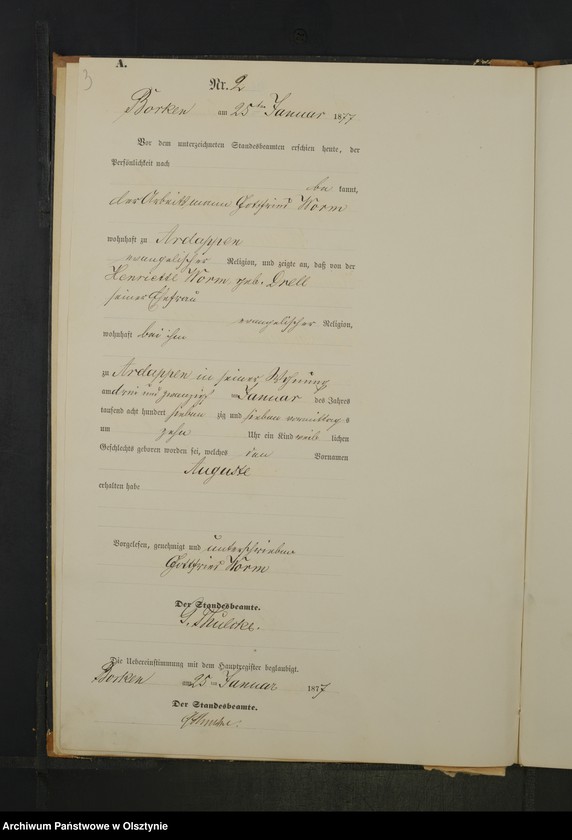 3
A.
Nr. 2
Borken am 25ten Januar 1877
Vor dem unterzeichneten Standesbeamten erschien heute, der
Persönlichkeit nach
be kannt,
der Arbeitsmann Gottfried Worm
wohnhaft zu Ardappen
evangelischer Religion, und zeigte an, daß von der
Henriette Worm geb. Drell
seiner Ehefrau
evangelischer Religion,
wohnhaft bei ihm
zu Ardappen in seiner Wohnung
am drei und zwanzigsten Januar des Jahres
tausend acht hundert sieben zig und sieben vormittag s
um zehn Uhr ein Kind weib lichen
Geschlechts geboren worden sei, welches den Vornamen
Auguste
erhalten habe
Vorgelesen, genehmigt und unterschrieben
Gottfried Worm
Der Standesbeamte.
Die Uebereinstimmung mit dem Hauptregister beglaubigt.
Borken am 25 ten Januar 1877
Der Standesbeamte.
Archiwum Państwowe w Olsztynie